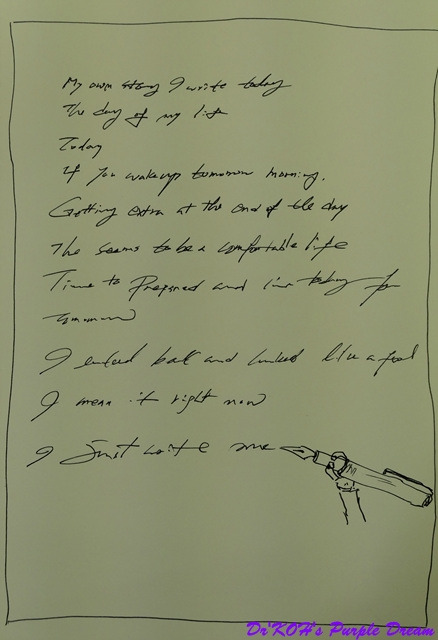 My own story I write today
The day of my life
Today
If you wake up tomorrow morning.
Getting extra at the end of the day
The seems to be a comfortable life
Time to Prepared and live today for
tomorrow
I ball and like a fool
I mean it right now
I Just write me
Dr'KOH's Purple Dream